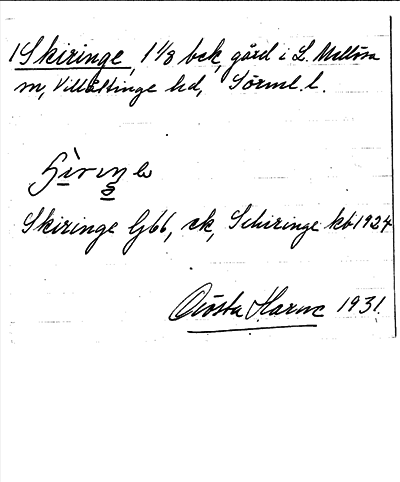 1 Skiringe, 1 1/8 bck, gård i L. Mellösa
sn, Villåttinge hd, Sörml. l.
Skiringe Gbb, ek, Schiringe kb 1924
Gösta Harne 1931.